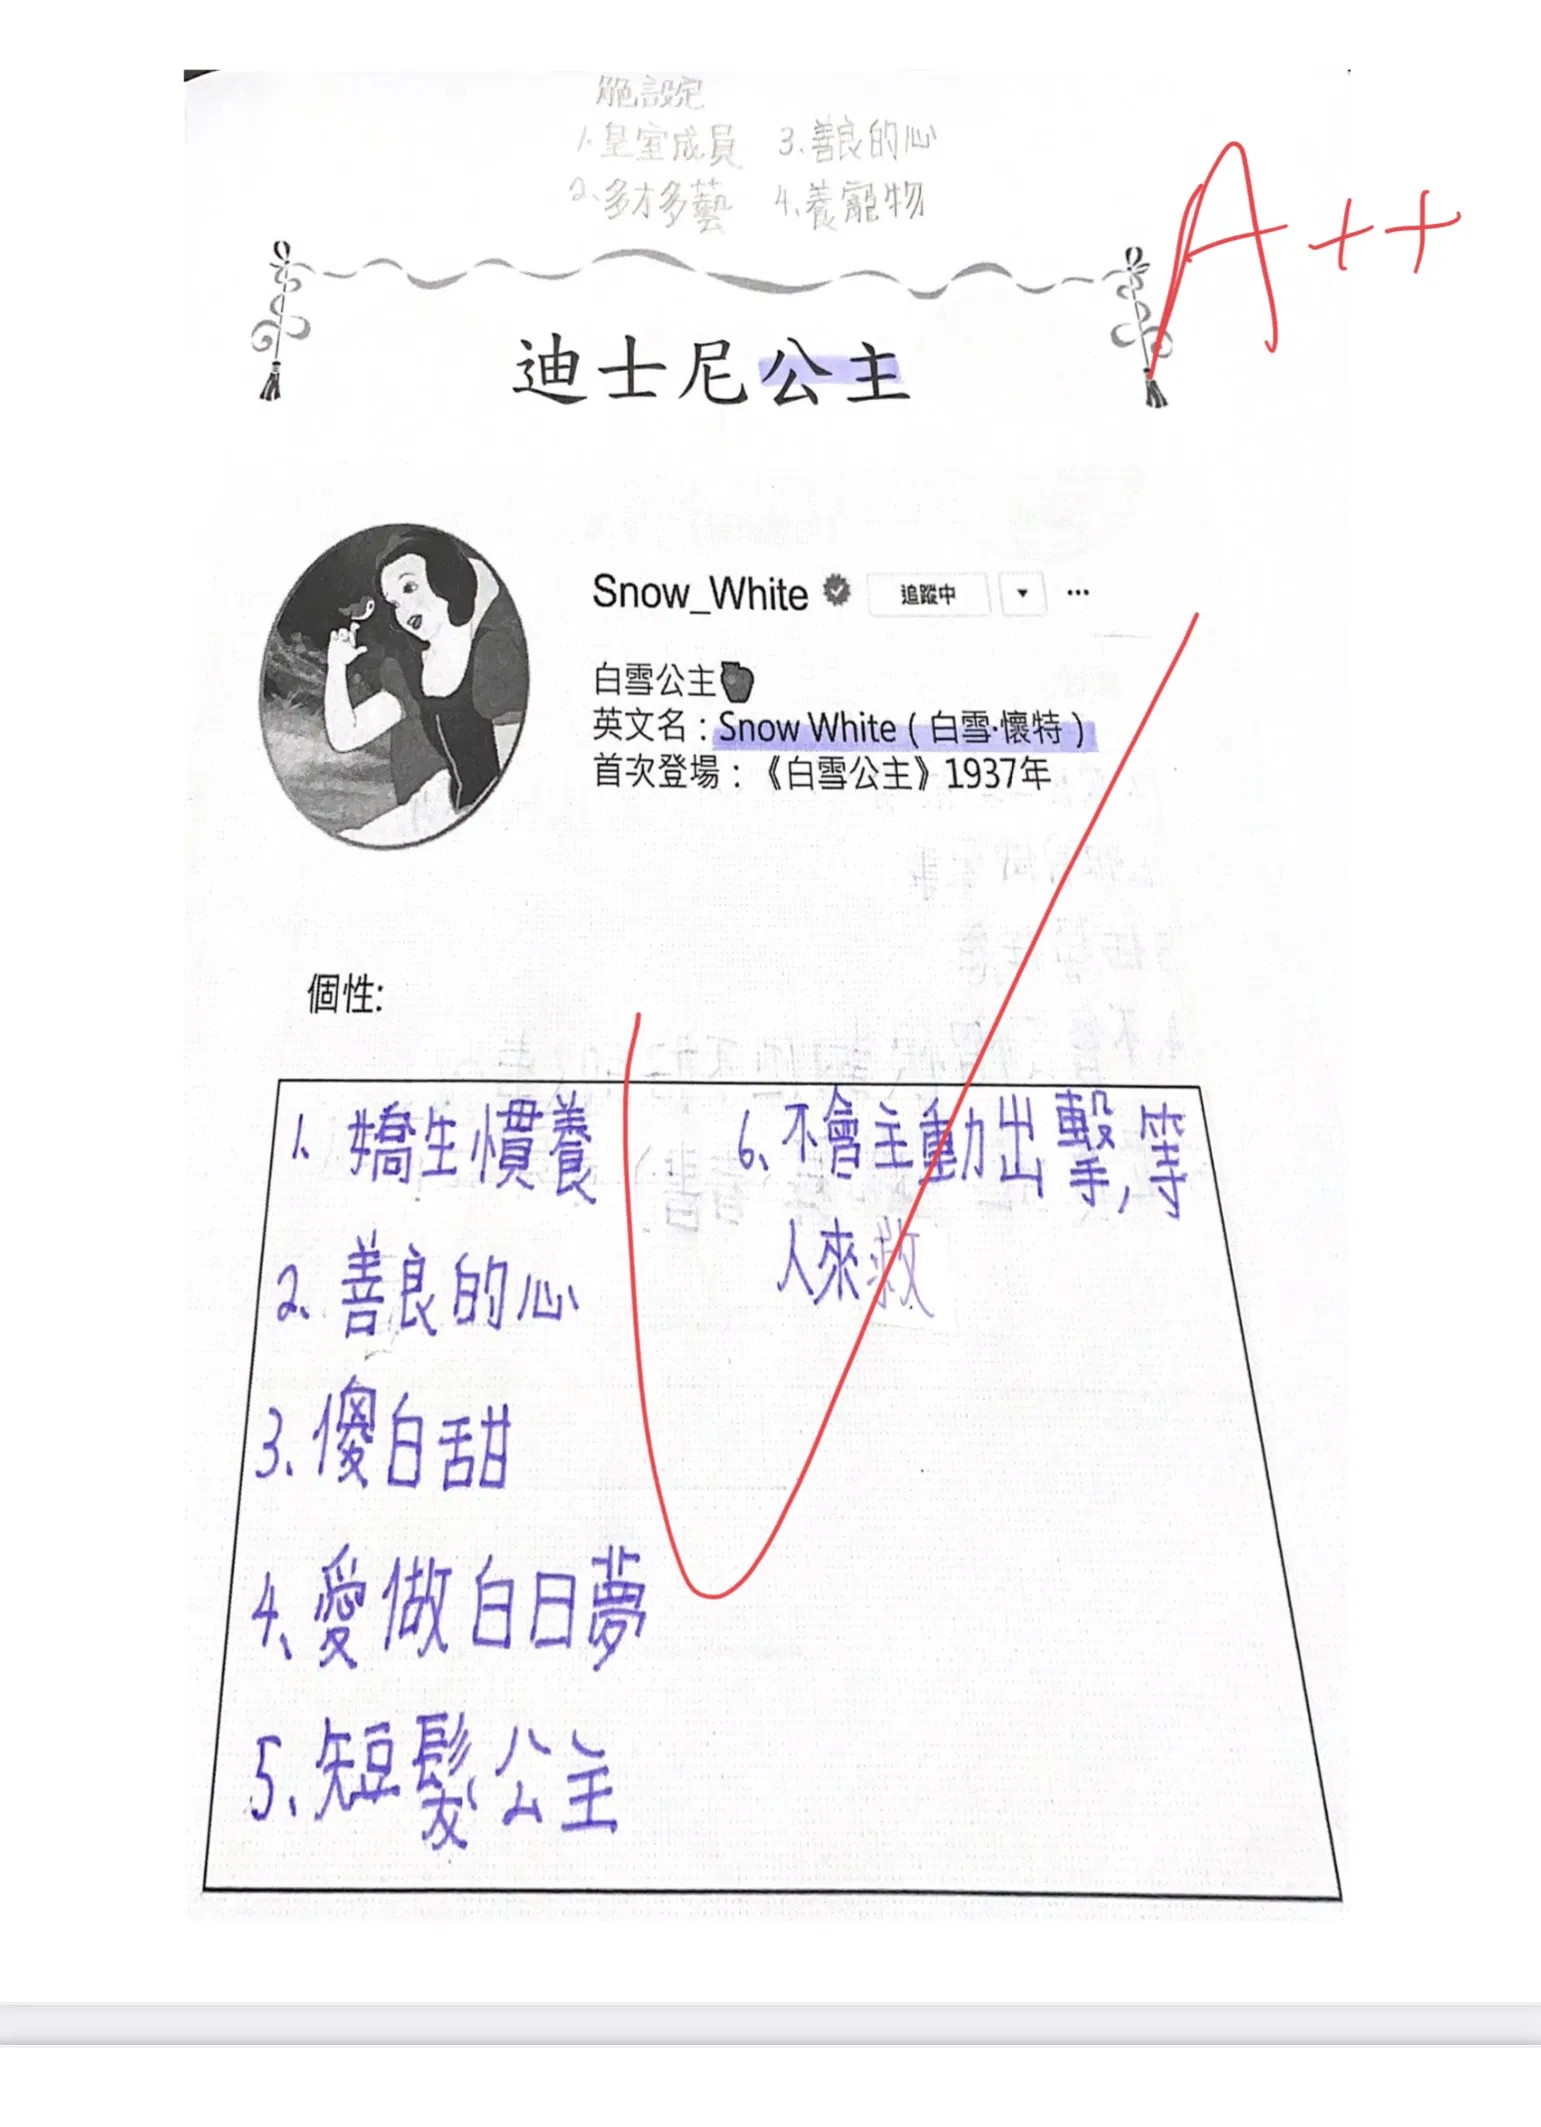 角色設定
1.皇室成員 3.善良的心
2.多才多藝 4.養寵物
A++
迪士尼公主
Snow_White 追蹤中 ▼ ...
白雪公主
英文名：Snow White（白雪·懷特）
首次登場：《白雪公主》1937年
個性:
1. 嬌生慣養
2. 善良的心
3. 傻白甜
4. 愛做白日夢
5. 短髮公主
6. 不會主動出擊,等
人來救